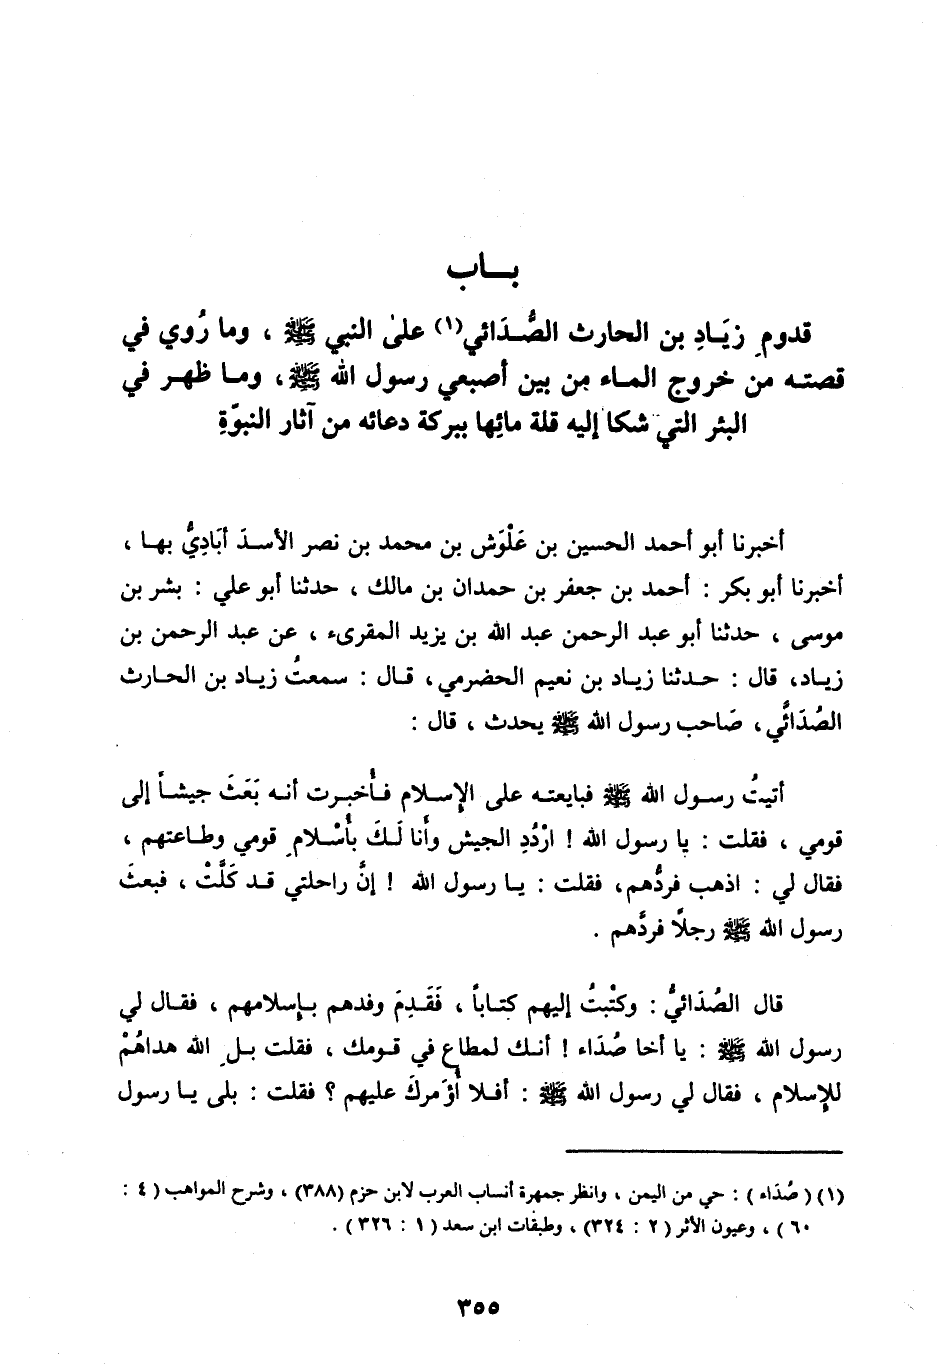 بـــاب
قدومِ زيَـادِ بن الحارث الصُّـدَائي(١) علىٰ النبي ﷺ ، وما رُوي في
قصتـه من خروج المـاء مِن بين أصبعي رسول الله ﷺ ، ومـا ظهـر في
البئر التي شكا إليه قلة مائِها ببركة دعائه من آثار النبوّةِ
أخبرنا أبو أحمد الحسين بن عَلْوَش بن محمد بن نصر الأسـدَ أبَادِيُّ بهـا ،
أخبرنا أبو بكر : أحمد بن جعفر بن حمدان بن مالك ، حدثنا أبو علي : بشر بن
موسى ، حدثنا أبو عبد الرحمن عبد الله بن يزيد المقرىء ، عن عبد الرحمن بن
زيـاد، قال : حـدثنا زيـاد بن نعيم الحضرمي، قـال : سمعتُ زيـاد بن الحـارث
الصُدَائَي، صَاحب رسول الله ﷺ يحدث ، قال :
أتيتُ رسـول الله ﷺ فبايعتـه على الإسـلام فـأُخبـرت أنـه بَعَثَ جيشـاً إلى
قومي ، فقلت : يا رسول الله ! ارْدُدِ الجيش وأَنا لَـكَ بأُسْـلامِ قومي وطـاعتهم ،
فقال لي : اذهب فردُّهم، فقلت : يـا رسول الله ! إنَّ راحلتي قـد كَلَّتْ ، فبعثَ
رسول الله ﷺ رجلاً فردَّهم .
قال الصُدَائيُّ : وكتْبتُ إليهم كتـاباً ، فَقَـدِمَ وفدهم بـإسلامهم ، فقـال لي
رسول الله ﷺ : يا أخا صُدَاء ! أنـك لمطاع في قـومك ، فقلت بـلِ الله هداهُمْ
للإسلام ، فقال لي رسول الله ﷺ : أفـلا أُؤَمركَ عليهم ؟ فقلت : بلى يـا رسول
(١) ( صُدَاء ) : حي من اليمن ، وانظر جمهرة أنساب العرب لابن حزم (٣٨٨) ، وشرح المواهب ( ٤ :
٦٠ ) ، وعيون الأثر ( ٢ : ٣٢٤) ، وطبقات ابن سعد ( ١ : ٣٢٦ ) .
٣٥٥